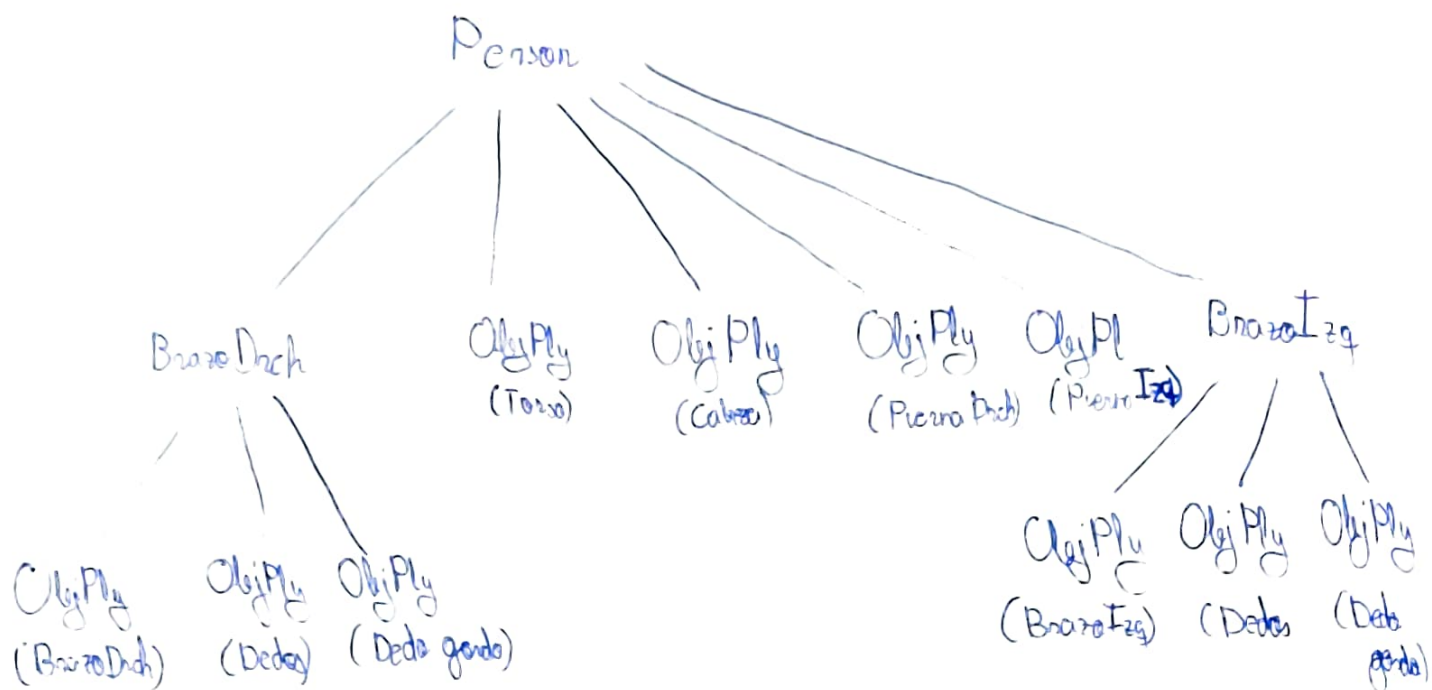 Person
BrazoDrch
ObjPly
(Torso)
ObjPly
(Cabeza)
ObjPly
(Pierna Drch)
ObjPl
(Pierna Izq)
BrazoIzq
ObjPly
(BrazoDrch)
ObjPly
(Dedos)
ObjPly
(Dedo gordo)
ObjPly
(BrazoIzq)
ObjPly
(Dedos
ObjPly
(Dedo
gordo)